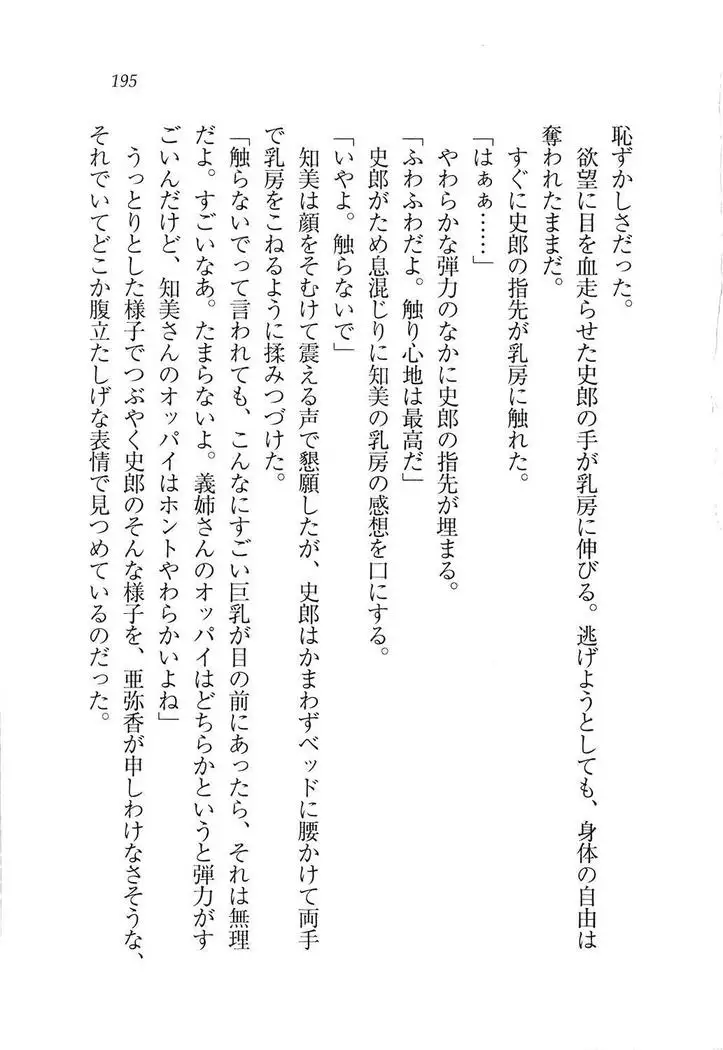 195
恥ずかしさだった。
欲望に目を血走らせた史郎の手が乳房に伸びる。逃げようとしても、身体の自由は
奪われたままだ。
すぐに史郎の指先が乳房に触れた。
「はぁぁ……」
やわらかな弾力のなかに史郎の指先が埋まる。
「ふわふわだよ。触り心地は最高だ」
史郎がため息混じりに知美の乳房の感想を口にする。
「いやよ。触らないで」
知美は顔をそむけて震える声で懇願したが、史郎はかまわずベッドに腰かけて両手
で乳房をこねるように揉みつづけた。
「触らないでって言われても、こんなにすごい巨乳が目の前にあったら、それは無理
だよ。すごいなあ。たまらないよ。義姉さんのオッパイはどちらかというと弾力がす
ごいんだけど、知美さんのオッパイはホントやわらかいよね」
うっとりとした様子でつぶやく史郎のそんな様子を、亜弥香が申しわけなさそうな、
それでいてどこか腹立たしげな表情で見つめているのだった。